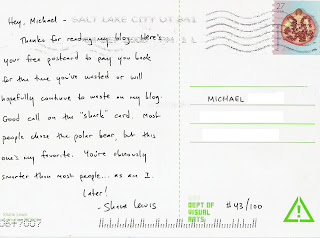 SALT LAKE CITY UT 841
Hey, Michael -
Thanks for reading my blog. Here's
your free postcard to pay you back
for the time you've wasted or will
hopefully continue to waste on my blog.
Good call on the "shark" card. Most
people chose the polar bear, but this
one's my favorite. You're obviously
smarter than most people... as am I.
Later!
- Shane Lewis
27
MICHAEL
DEPT OF
VISUAL
ARTS
#43/100